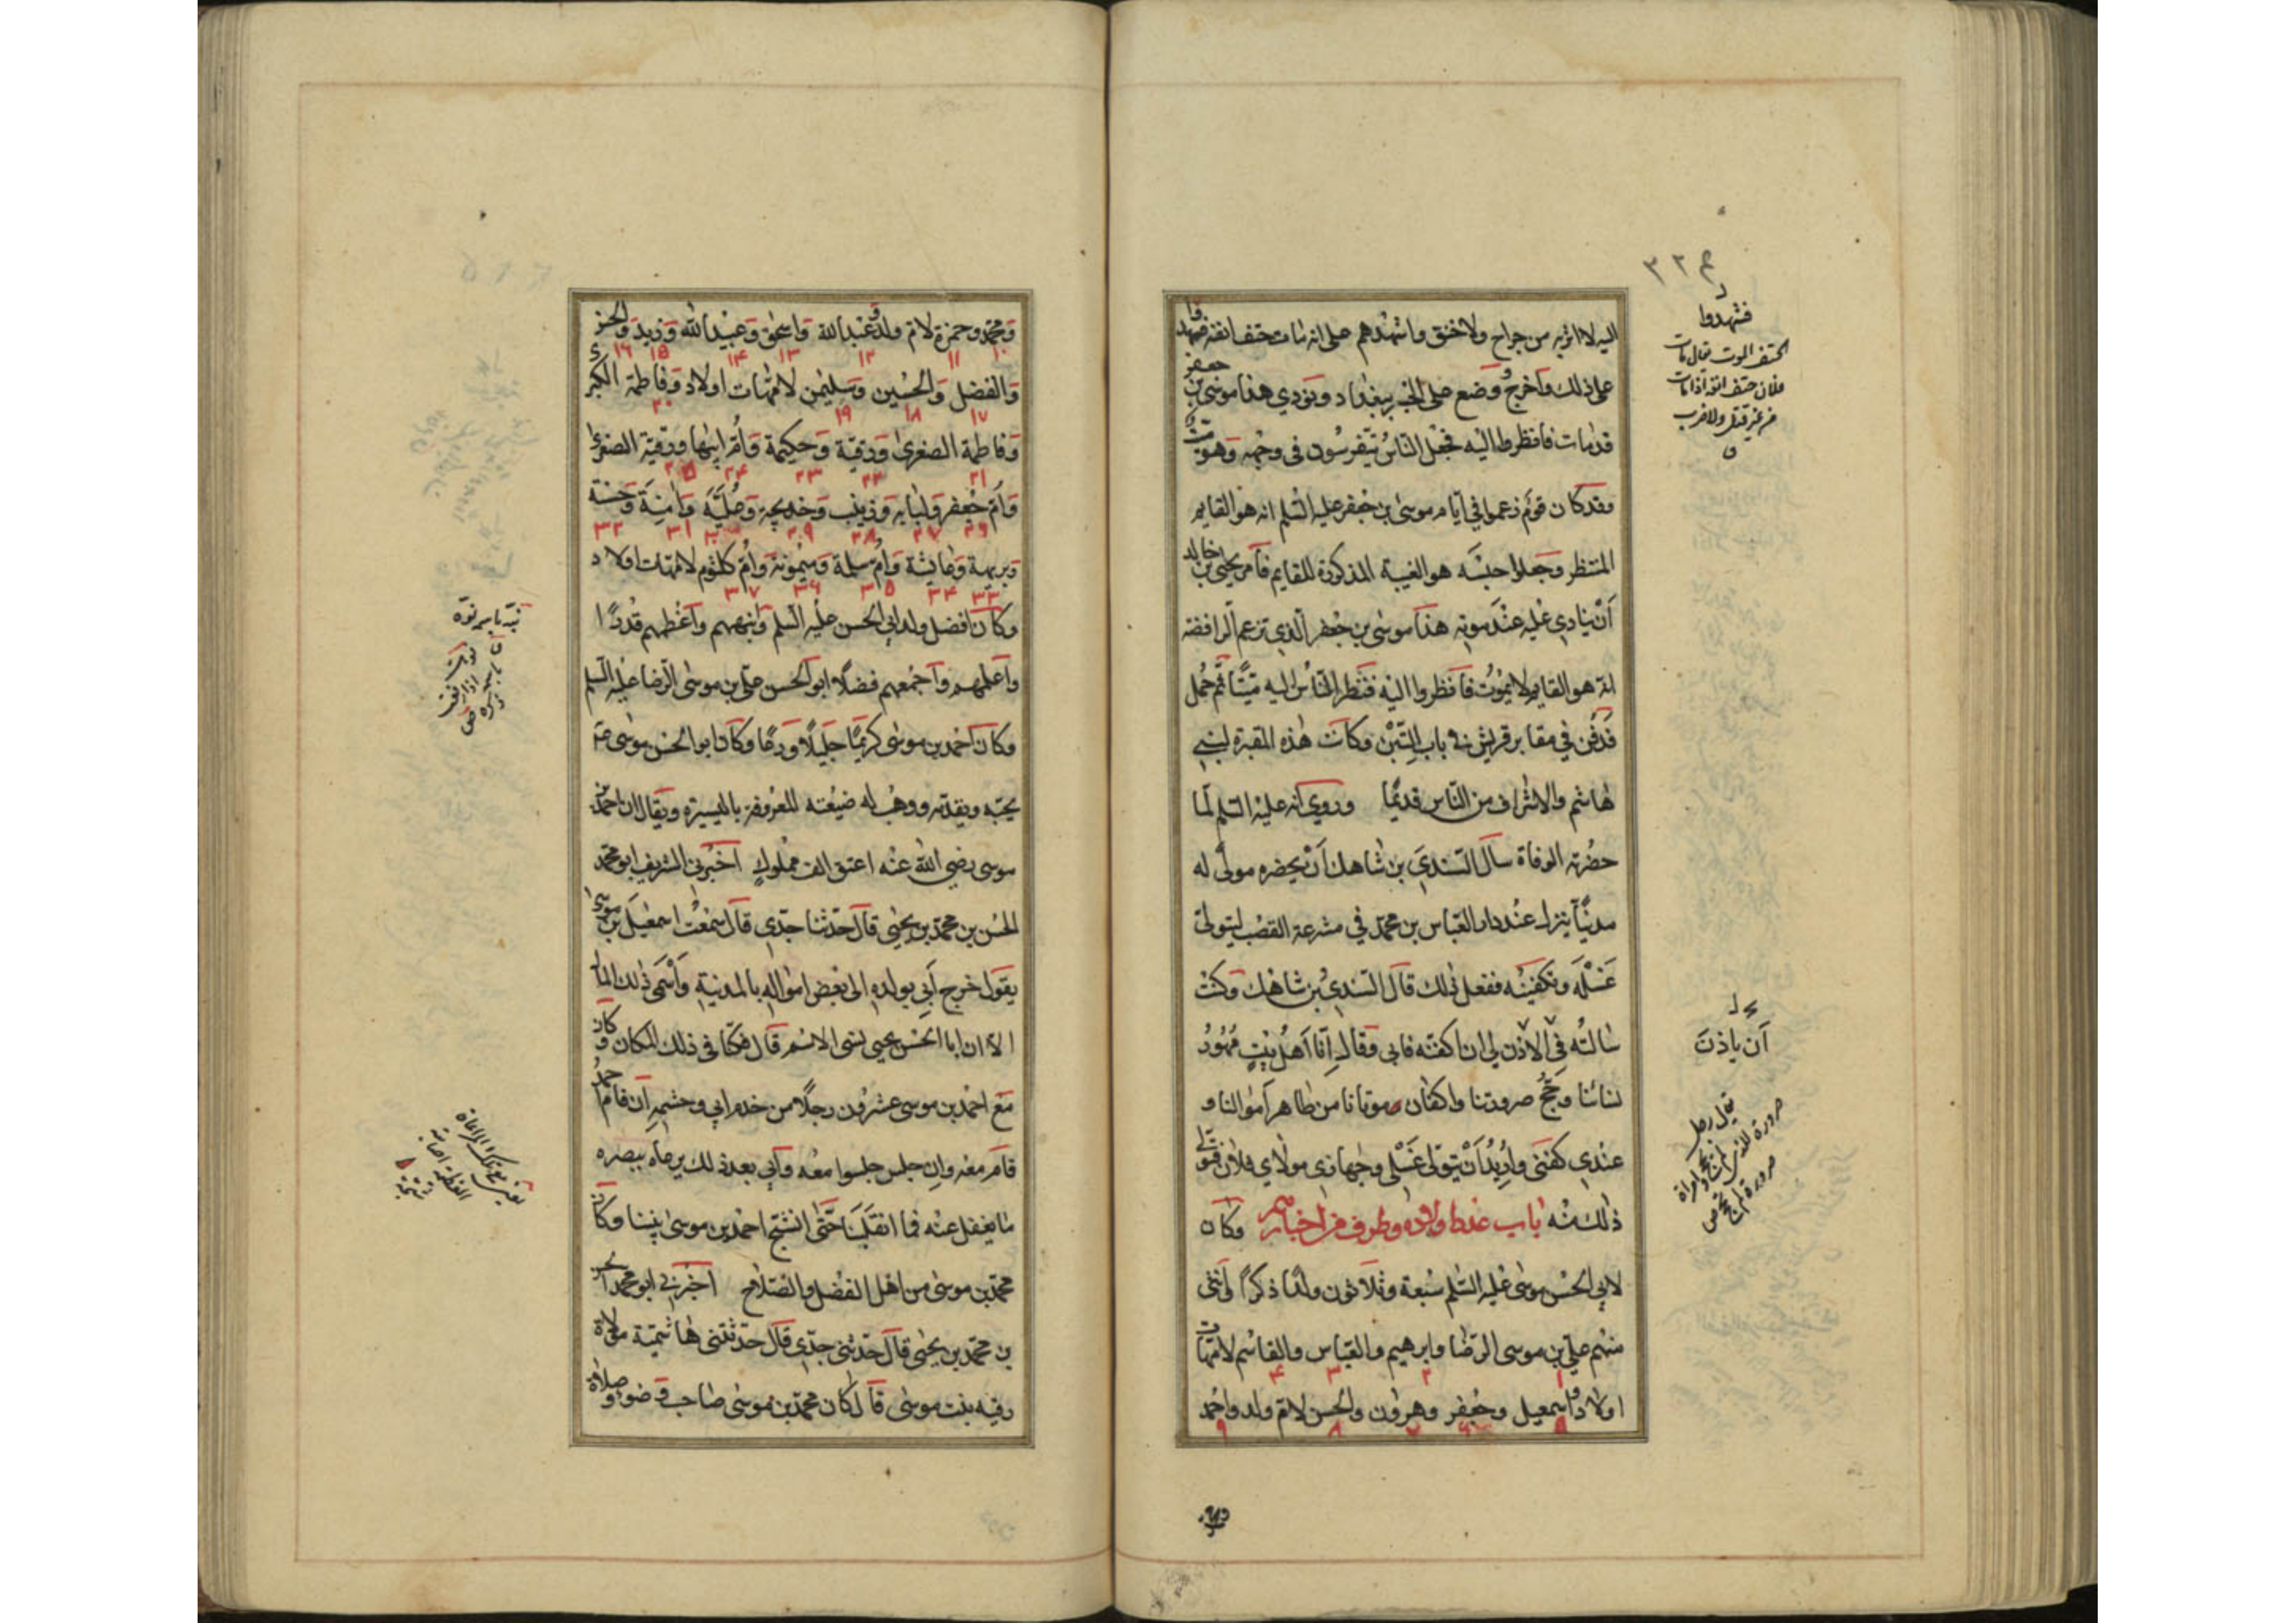 ٣٢٤
اليه لا اثر به من جراح ولا خنق واشهدهم على انه مات حتف انفه فشهدوا
على ذلك وأخرج ووضع على الجسر ببغداد ونودي هذا موسى بن جعفر
قد مات فانظروا اليه فجعل الناس يتفرسون في وجهه وهو ميت
وقد كان قوم زعموا في أيام موسى بن جعفر عليه السلم انه هو القايم
المنتظر وجعلوا حبسه هو الغيبة المذكورة للقايم فأمر يحيى بن خالد
أن ينادى عليه عند موته هذا موسى بن جعفر الذي تزعم الرافضة
انه هو القايم لا يموت فانظروا اليه فنظر الناس اليه ميتا ثم حمل
فدفن في مقابر قريش في باب التبن وكانت هذه المقبرة لبني
هاشم والاشراف من الناس قديما وروي أنه عليه السلم لما
حضرته الوفاة سال السندي بن شاهك أن يحضره مولى له
مدنيا ينزل عند دار العباس بن محمد في مشرعة القصب ليتولى
غسله وتكفينه ففعل ذلك قال السندي بن شاهك وكنت
سالته في الاذن لي ان اكفنه فابى وقال إنا أهل بيت مهور
نسائنا وحج صرورتنا واكفان موتانا من طاهر أموالنا و
عندي كفني وأريد أن يتولى غسلي وجهازي مولاي فلان فتولى
ذلك منه باب عدد اولاده وطرف من اخبارهم وكان
لابي الحسن موسى عليه السلم سبعة وثلاثون ولدا ذكرا وأنثى
منهم علي بن موسى الرضا وابرهيم والعباس والقاسم لامهات
١ ٢ ٣ ٤
اولاد واسمعيل وجعفر وهرون والحسن لام ولد واحمد
٥ ٦ ٧ ٨ ٩
فشهدوا
الحتف الموت يقال مات
فلان حتف انفه اذا مات
من غير قتل ولا ضرب
أن ياذن
يقال رجل
صرورة للذي لم يحج وامراة
صرورة لم تحج ص
ومحمد وحمزة لام ولد وعبدالله واسحق وعبيدالله وزيد والحسن
١٠ ١١ ١٢ ١٣ ١٤ ١٥ ١٦
والفضل والحسين وسليمن لامهات اولاد وفاطمة الكبرى
١٧ ١٨ ١٩ ٢٠
وفاطمة الصغرى ورقية وحكيمة وأم ابيها ورقية الصغرى
٢١ ٢٢ ٢٣ ٢٤ ٢٥
وأم جعفر ولبابه وزينب وخديجه وعلية وآمنة وحسنة
٢٦ ٢٧ ٢٨ ٢٩ ٣٠ ٣١ ٣٢
وبريهة وعايشة وأم سلمة وميمونة وأم كلثوم لامهات اولاد
٣٣ ٣٤ ٣٥ ٣٦ ٣٧
وكان افضل ولد ابي الحسن عليه السلم وأنبههم وأعظمهم قدرا
وأعلمهم وأجمعهم فضلا ابو الحسن علي بن موسى الرضا عليه السلم
وكان احمد بن موسى كريما جليلا ورعا وكان ابو الحسن موسى
يحبه ويقدمه ووهب له ضيعته المعروفة باليسيرة ويقال ان احمد بن
موسى رضي الله عنه اعتق الف مملوك أخبرني الشريف ابو محمد
الحسن بن محمد بن يحيى قال حدثنا جدي قال سمعت اسمعيل بن موسى
يقول خرج أبي بولده الى بعض امواله بالمدينة وأسمى ذلك المال
الا ان ابا الحسن يحيى نسى الاسم قال فكنا في ذلك المكان وكان
مع احمد بن موسى عشرون رجلا من خدم ابي وحشمه إن قام احمد
قام معه وإن جلس جلسوا معه وأبي بعد ذلك يرعاه ببصره
ما يغفل عنه فما انقلبنا حتى انشج احمد بن موسى بيننا وكان
محمد بن موسى من اهل الفضل والصلاح أخبرني ابو محمد الحسن
بن محمد بن يحيى قال حدثني جدي قال حدثتني هاشمية مولاة
رقيه بنت موسى قال كان محمد بن موسى صاحب وضوء وصلاة